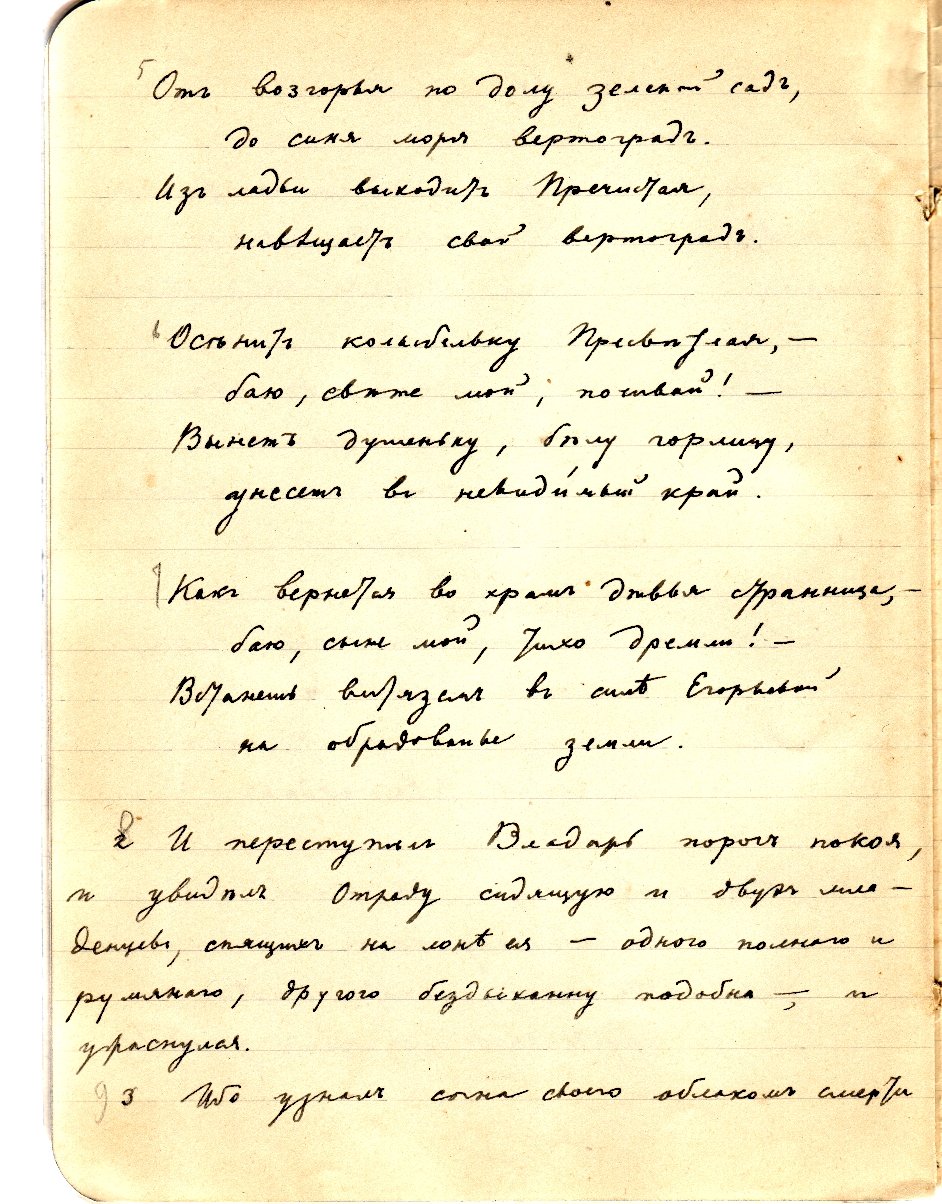 5 Отъ возгорья по долу зеленый садъ,
до синя моря вертоградъ.
Изъ ладьи выходитъ Пречистая,
навѣщаетъ свой вертоградъ.
6 Осѣнитъ колыбельку Пресвѣтлая, —
баю, свѣте мой, почивай! —
Вынетъ душеньку, бѣлу горлицу,
унесетъ въ невиди́мый край.
7 Какъ вернется во храмъ дѣвья странница, —
баю, сыне мой, тихо дремли! —
Встанешь витяземъ въ силѣ Егорьевой
на обрадованье земли.
8 И переступилъ Владарь порогъ покоя,
и увидѣлъ Отраду сидящую и двухъ мла-
денцевъ, спящихъ на лонѣ ея — одного полнаго и
румянаго, другого бездыханну подобна —, и
ужаснулся.
9 3 Ибо узналъ сына своего облакомъ смерти